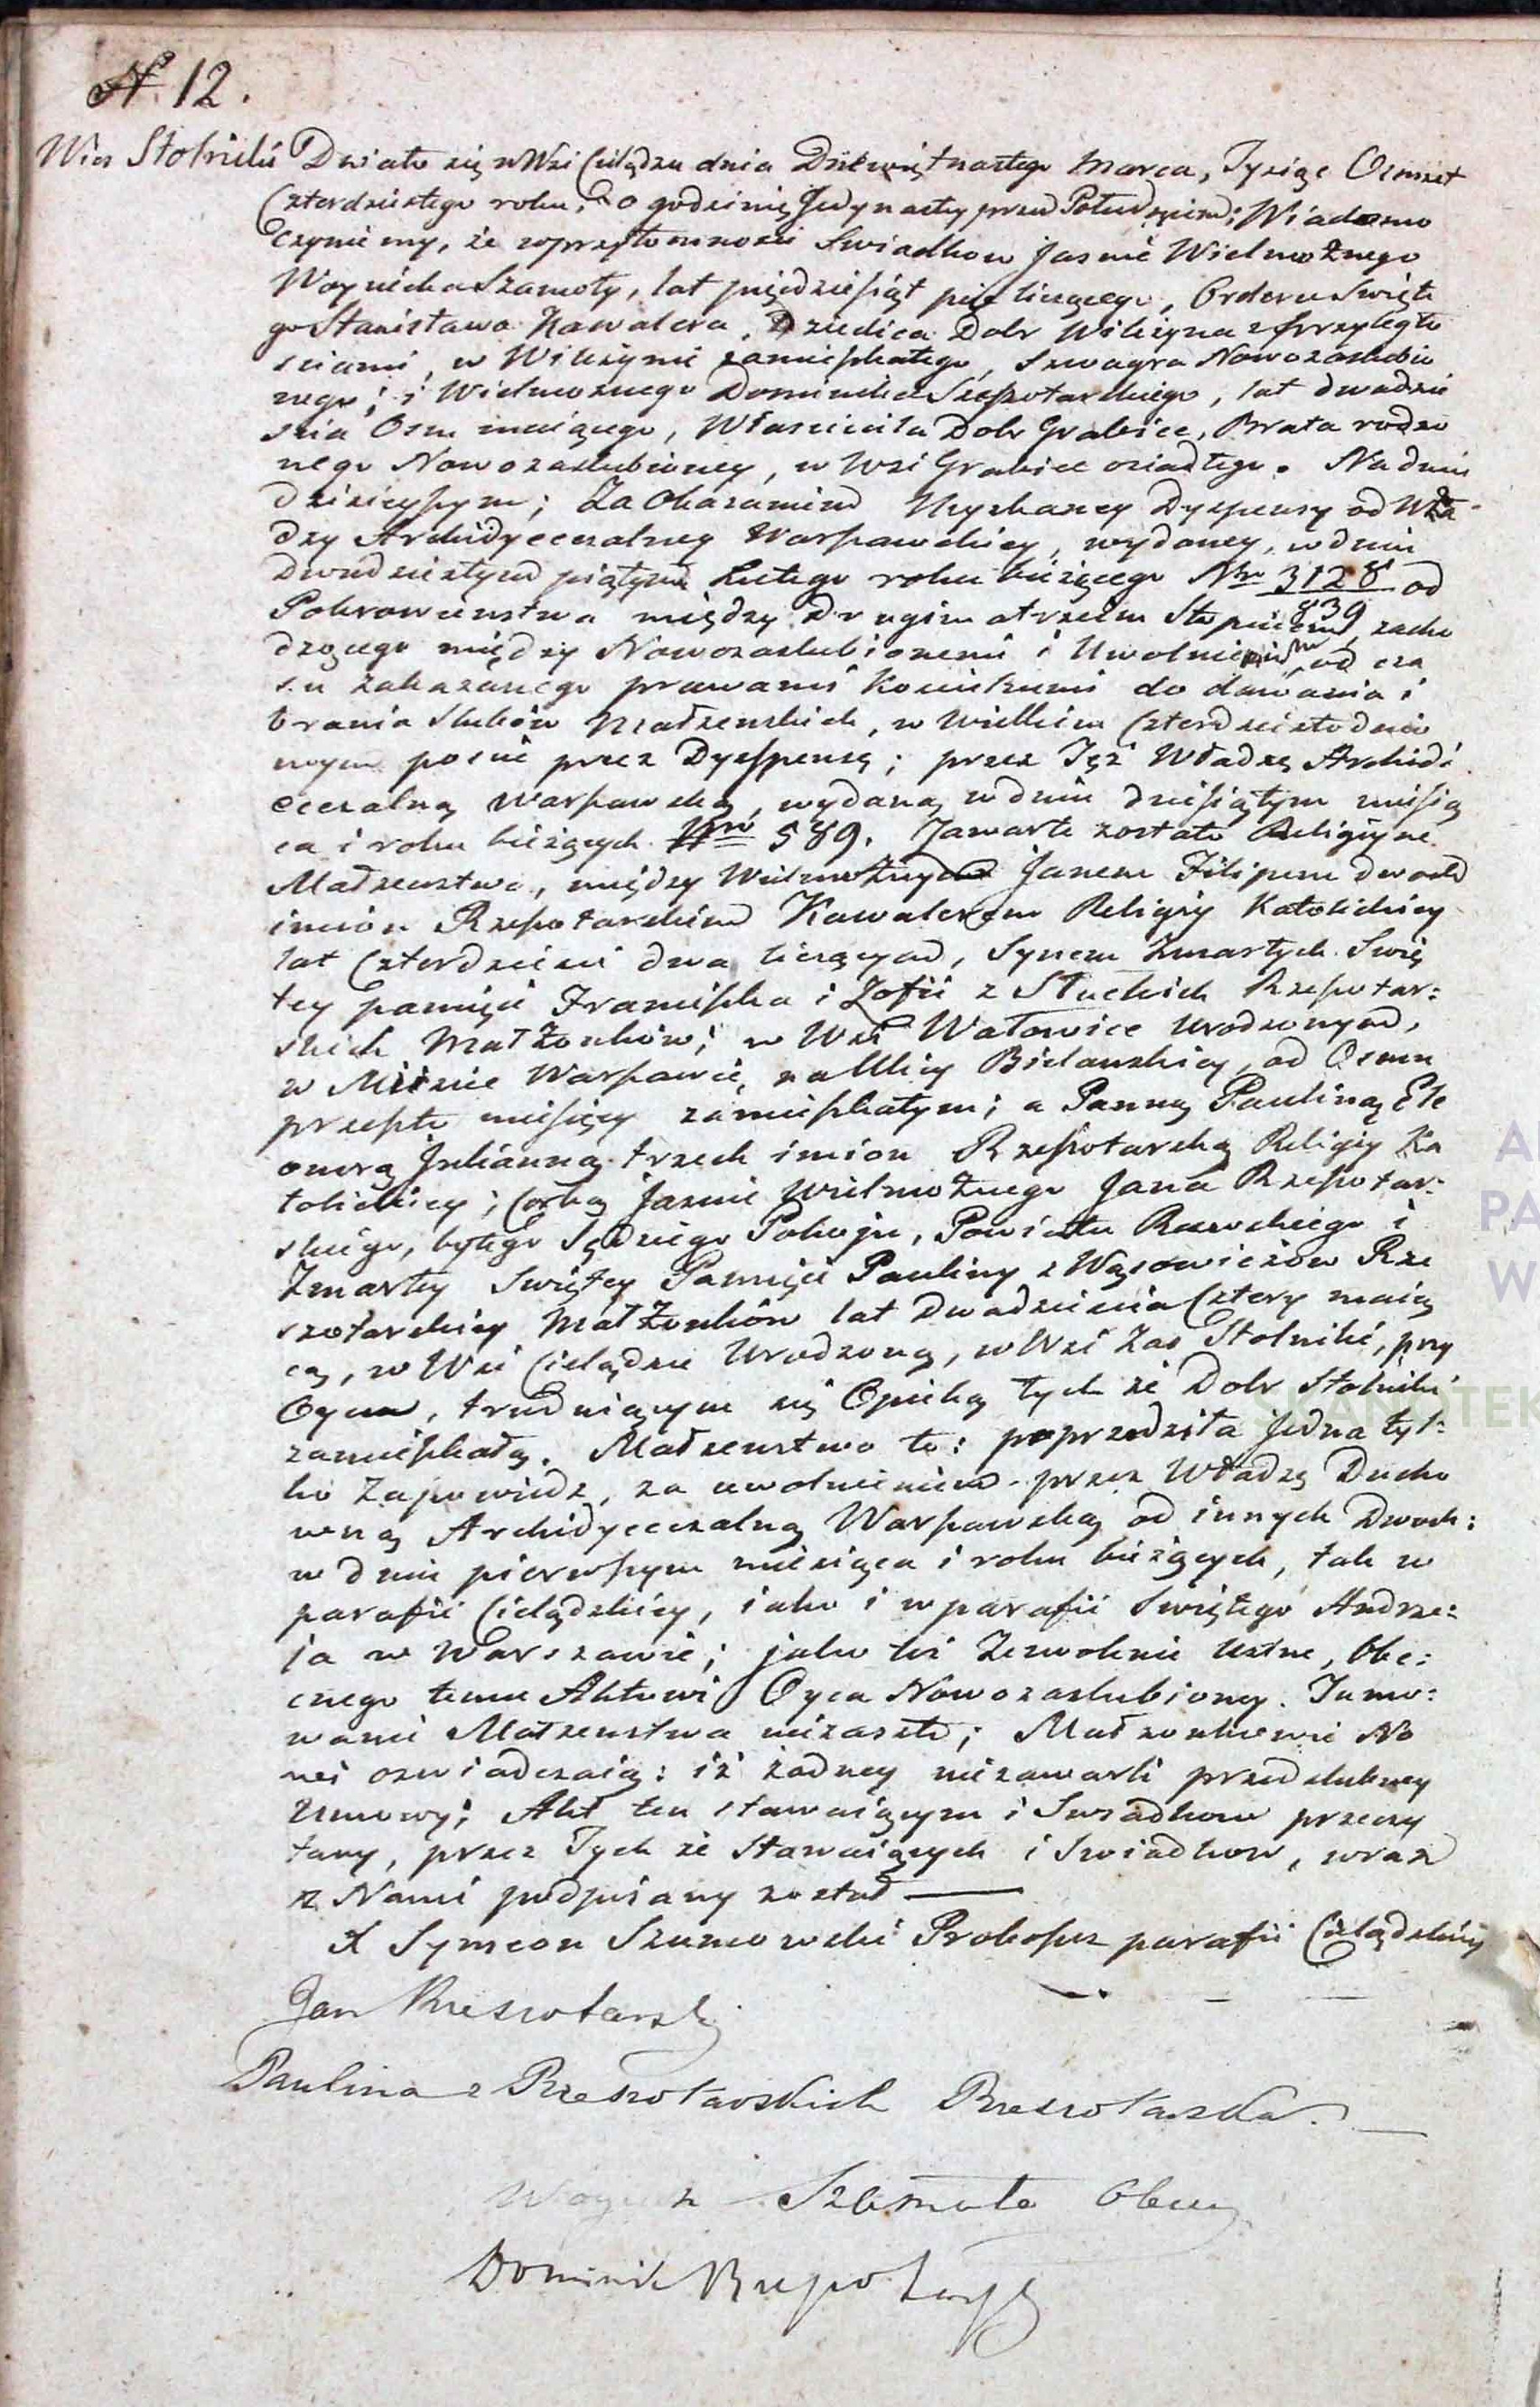 N. 12.
Wieś Stolniki Działo się w Wsi Cielądzu dnia Dziewiętnastego Marca, Tysiąc Ośmset
Czterdziestego roku, o godzinie Jedynastey przed Południem; Wiadomo
Czyniemy, że w przytomnosci Swiadkow Jasnie Wielmożnego
Woyciecha Szamoty, lat pięćdziesiąt pięć liczącego, Orderu Swięte
go Stanisława Kawalera, Dziedzica Dobr Wilczyna z Przyległo
sciami, w Wilczynie zamieszkałego, Szwagra Nowozaslubio
nego; i Wielmoznego Dominika Rzeszotarskiego, lat dwadzie
scia Osm maiącego, Własciciela Dobr Grabice, Brata rodzo
nego Nowozaslubioney, w Wsi Grabice osiadłego. Na dniu
dzisieyszym; Za Okazaniem Uzyskaney Dyspensy od Wła-
dzy Archidyecezalney Warszawskiey, wydaney, w dniu
Dwudziestym piątym Lutego roku bieżącego Nro 3128 od
839
Pokrewienstwa między drugim a trzecim Stopniem, zacho
dzącego między Nowozaslubionemi i Uwolnieniem od cza
su zakazanego prawami Koscielnemi do dawania i
brania slubów Małzenskich, w wielkim Czterdziestodnio
wym poscie przez Dyspensę; przez Tęż Władzę Archidi
ecezalną Warszawską, wydaną w dniu dziesiątym miesią
ca i roku bieżących Nro 589. Zawarte zostało Religiyne
Małzenstwo, między Wielmożnym Janem Filipem dwoch
imion Rzeszotarskim Kawalerem Religiy Katolickiey
lat Czterdziesci dwa liczącym, Synem Zmarłych Swię
tey pamięci Franciszka i Zofii z Słuckich Rzeszotar:
skich Małżonków; w Wsi Watowice urodzonym,
w Miescie Warszawie, na Ulicy Bielanskiey, od Osmu
przeszło miesięcy zamieszkałym; a Panną Pauliną Ele
onorą Julianną trzech imion Rzeszotarską Religiy Ka
tolickiey; Corką Jasnie Wielmożnego Jana Rzeszotar:
skiego, byłego Sędziego Pokoju, Powiatu Rawskiego i
Zmarłey Swiętey Pamięci Pauliny z Wąsowiczów Rze
szotarskiey Małżonków lat Dwadziescia Cztery maią
cą, w Wsi Cielądzu Urodzoną, w Wsi zas Stolniki, przy
Oycu, trudniącym się Opieką tych że Dobr Stolniki
zamieszkałą. Małzenstwo to: poprzedziła jedna tyl:
ko Zapowiedz, za uwolnieniem przez Władzę Ducho
wną Archidyecezalną Warszawską od innych Dwoch:
w dniu pierwszym miesiąca i roku bieżących, tak w
parafii Cielądzkiey, iako i w parafii Swiętego Andrze:
ja w Warszawie; jako też Zezwolenie Ustne, Obe:
cnego temu Aktowi Oyca Nowozaslubioney. Tamo:
wanie Małzenstwa niezaszło; Małzonkowie No
wi oswiadczaią: iż żadney niezawarli przedslubney
Umowy; Akt ten stawaiącym i Swiadkow przeczy
tany, przez Tych że Stawaiących i Swiadkow, wraz
z Nami podpisany został
X Symeon Szumowski Proboszcz parafii Cielądzkiey
Jan Rzeszotarski
Paulina z Rzeszotarskich Rzeszotarska.
Woyciech Szamota Obecny
Dominik Rzeszotarski